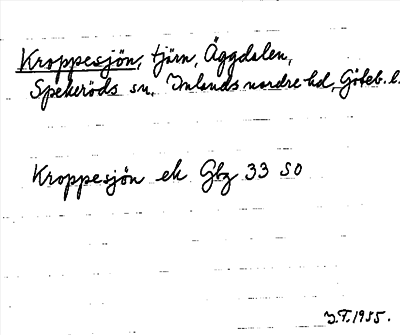 Kroppesjön, tjärn, Äggdalen,
Spekeröds sn. Inlands nordre hd, Göteb. l.
Kroppesjön ek Gbg 33 SO
I.T. 1955.